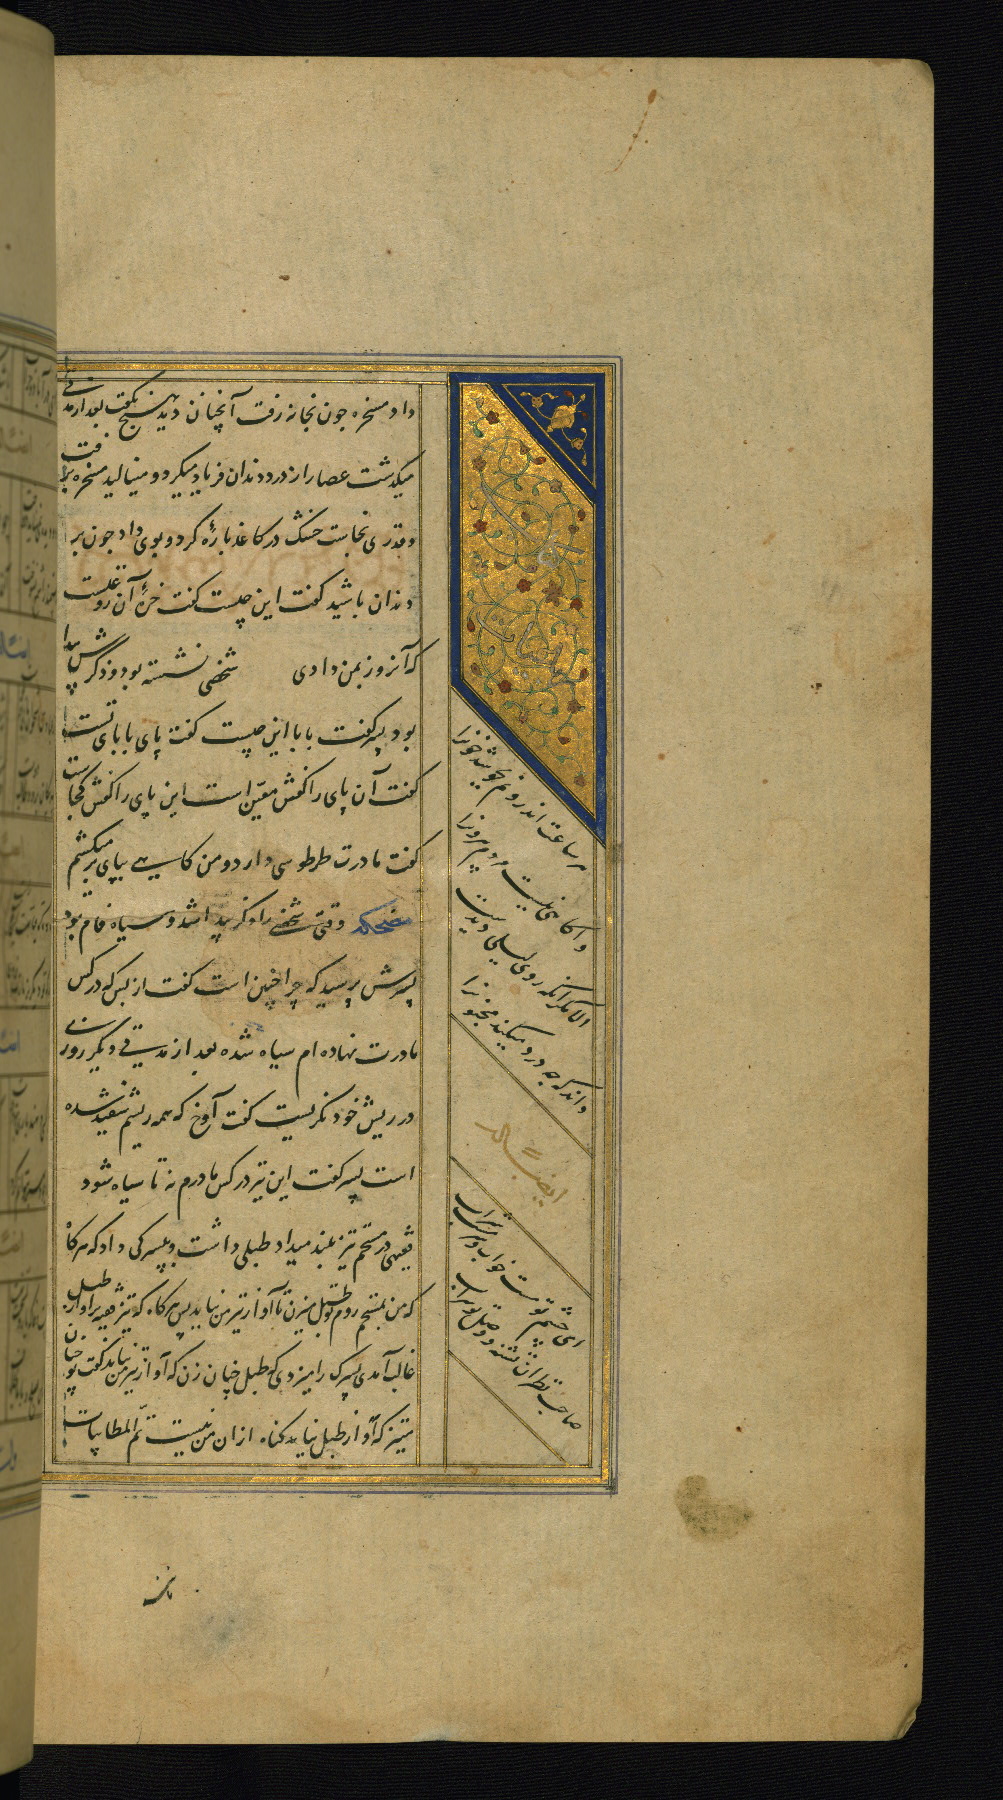 داد مسخره چون بخانه رفت آنچنان دید هیچ نگفت بعد از مدتی
میگذشت عصار از درد دندان فریاد میکرد و مینالید مسخره برفت
و قدری نجاست خشک در کاغذ پارهٔ کرد و بوی داد چون بر
دندان باشید گفت این چیست گفت خرهٔ آن روغنست
که آنروز بمن دادی شخصی نشسته بود و ذکرش پیدا
بود پسر گفت بابا این چیست گفت پای بابای تست
گفت آن پای را کفش معین است این پای را کفش کجاست
گفت مادرت طرطوسی دارد و من کاسی بپای بر میکشم
مضحکه وقتی شخصی را ذکر پیدا شد و سیاه فام بود
پسرش پرسید که چرا چنین است گفت از بس که در کس
مادرت نهاده ام سیاه شده بعد از مدتی دیگر روزی
در ریش خود نگریست گفت آوخ که همه ریشم سفید شده
است پسر گفت این نیز در کس مادرم نه تا سیاه شود
فقیهی در مستحم تیز بلند میداد طبلی داشت و بپسرکی داد که هرگاه
که من بمستحم روم تو طبل میزن تا آواز تیز من نیاید پس هرگاه که تیز فقیه بر آواز طبل
غالب آمدی پسرک را میزدی که طبل چنان زن که آواز تیز من نیاید گفت تو چنان
میتیز که آواز طبل نیاید گناه از ان من نیست تم المطایبات
هر ساعت اندرون بجوشد خونرا
و آگاهی نیست مردم بیرونرا
الا مگر آنکه روی لیلی دیدست
داند که چه درد میکشد مجنونرا
ایضاً له
ای چشم تو مست خواب و سرمست شراب
صاحب نظران تشنه و وصل تو سراب
مانند